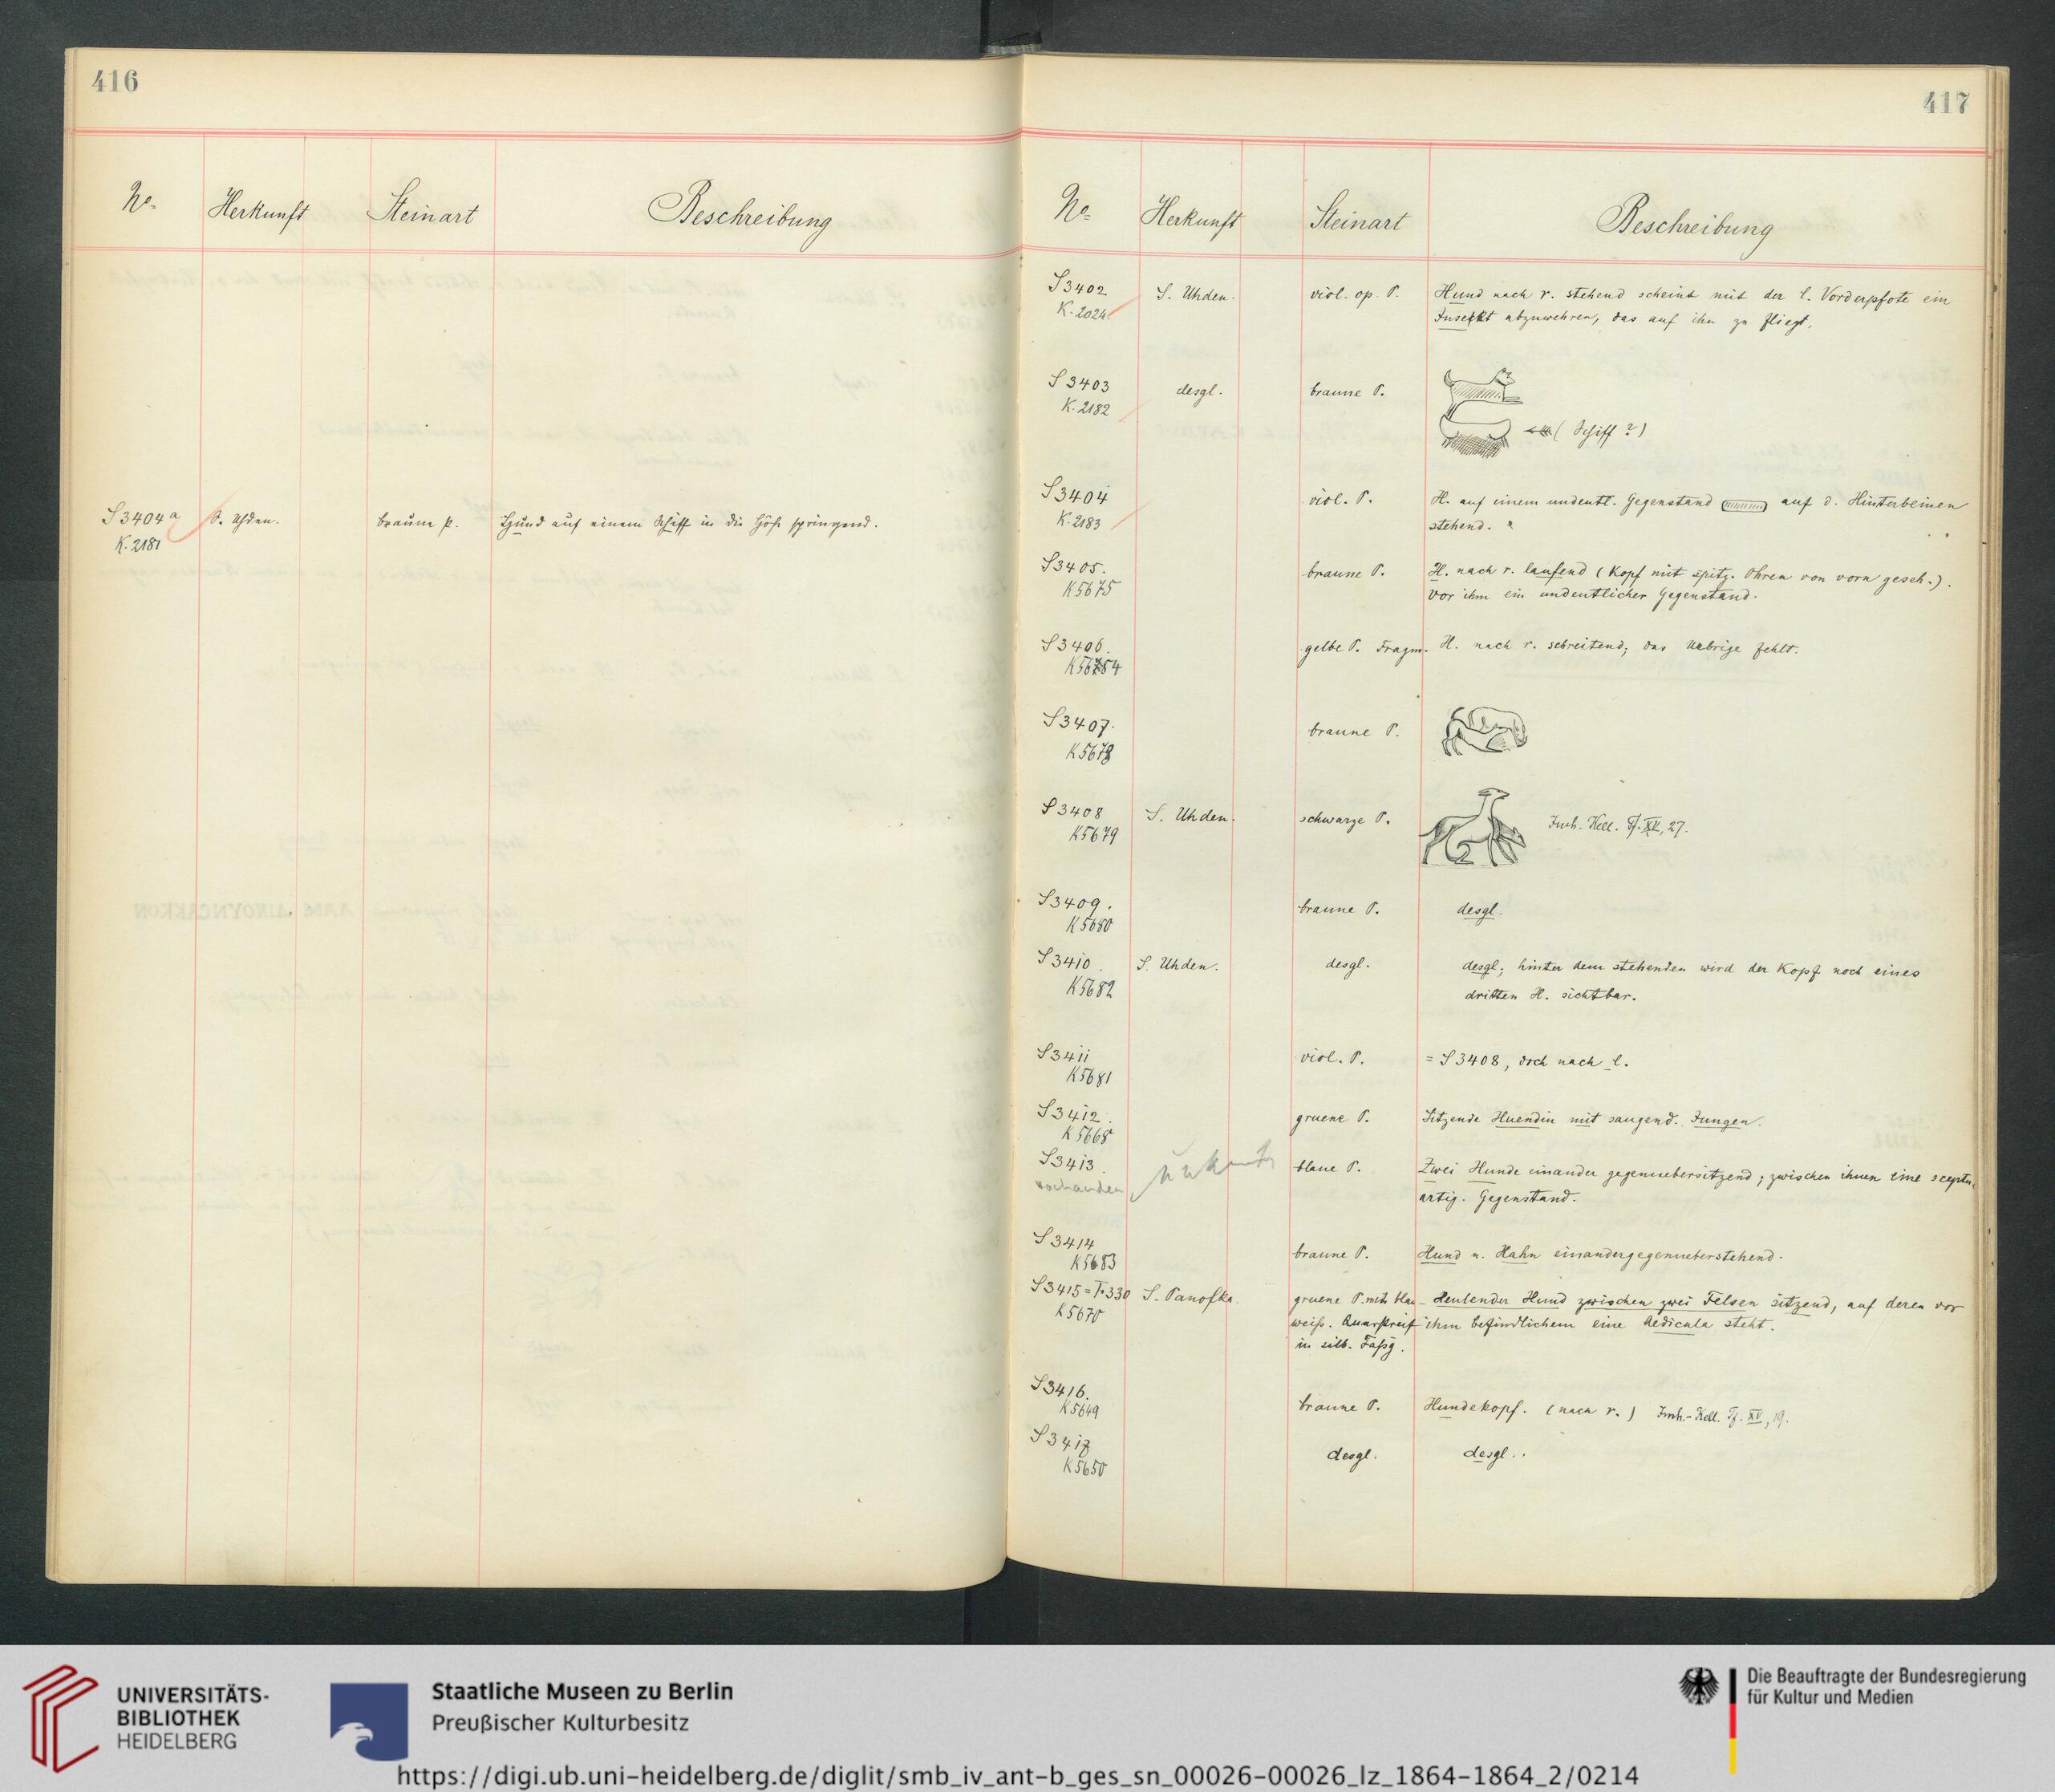 416
No. Herkunft Steinart Beschreibung
S 3404a S. Uhden. braune P. Hund auf einem Schiff in die Höhe springend.
K. 2181
417
No. Herkunft Steinart Beschreibung
S 3402 S. Uhden. viol. op. P. Hund nach r. stehend scheint mit der l. Vorderpfote ein
K. 2024 Insekt abzuwehren, das auf ihn zu fliegt.
S 3403 desgl. braune P.
K. 2182
(Schiff?)
S 3404 viol. P. H. auf einem undeutl. Gegenstand auf d. Hinterbeinen
K. 2183 stehend.
S 3405. braune P. H. nach r. laufend (Kopf mit spitz. Ohren von vorn geseh.).
K 5675 Vor ihm ein undeutlicher Gegenstand.
S 3406. gelbe P. Fragm. H. nach r. schreitend; das Uebrige fehlt.
S 3407. braune P.
K 5678
S 3408 S. Uhden. schwarze P. Imh. Kell. Tf. XV, 27.
K 5679
S 3409. braune P. desgl.
K 5680
S 3410. S. Uhden. desgl. desgl; hinter dem stehenden wird der Kopf noch eines
K 5682 dritten H. sichtbar.
S 3411 viol. P. = S 3408, doch nach l.
K 5681
S 3412. gruene P. Sitzende Huendin mit saugend. Jungen.
K 5668
S 3413. blaue P. Zwei Hunde einander gegenuebersitzend; zwischen ihnen eine sceptr.
vorhanden artig. Gegenstand.
S 3414 braune P. Hund u. Hahn einandergegenueberstehend.
K 5683
S 3415 = T. 330 S. Panofka. gruene P. mit blau- Heulender Hund zwischen zwei Felsen sitzend, auf deren vor
K 5670 weiss. Querstreif ihm befindlichem eine Aedicula steht.
in silb. Fassg.
S 3416. braune P. Hundekopf. (nach r.) Imh.-Kell. Tf. XV, 19.
K 5649
S 3417 desgl. desgl.
K 5650
UNIVERSITÄTS-
BIBLIOTHEK
HEIDELBERG
Staatliche Museen zu Berlin
Preußischer Kulturbesitz
Die Beauftragte der Bundesregierung
für Kultur und Medien
https://digi.ub.uni-heidelberg.de/diglit/smb_iv_ant-b_ges_sn_00026-00026_lz_1864-1864_2/0214